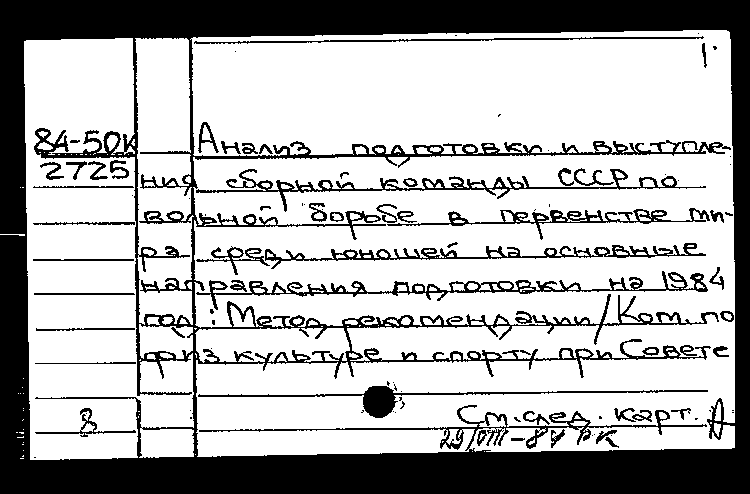 1.
84-50К
2725
Анализ подготовки и выступле-
ния сборной команды СССР по
вольной борьбе в первенстве ми-
ра среди юношей на основные
направления подготовки на 1984
год : Метод. рекомендации / Ком. по
физ. культуре и спорту при Совете
8
См. след. карт. А
29/VIII-84 РК